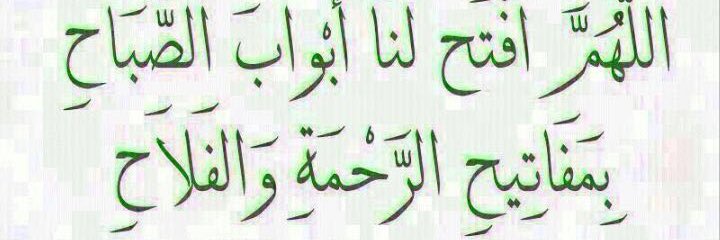 اللَّهُمَّ افْتَح لَنَا أَبْوابَ الصَّبَاحِ
بِمَفَاتِيحِ الرَّحْمَةِ وَالفَلَاَحِ